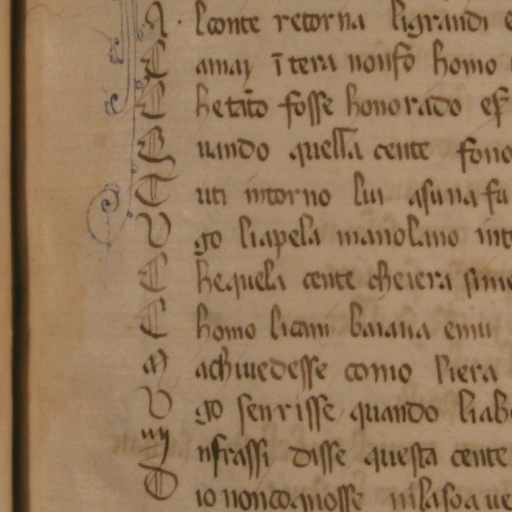 A lconte retorna ligrandi e
C amaỹ ī tera nonfo homo
C hetāto fosse honorado esp̄
Q uando quella cente fono
T uti intorno lui asuna fu
V go liapela manolano int
C hequela cente cheiera sime
C homo licani baiaua emu
M achiuedesse como liera
V go senrisse quando liab
nfrassi disse questa cente
D io noncognosse nilasoa ue